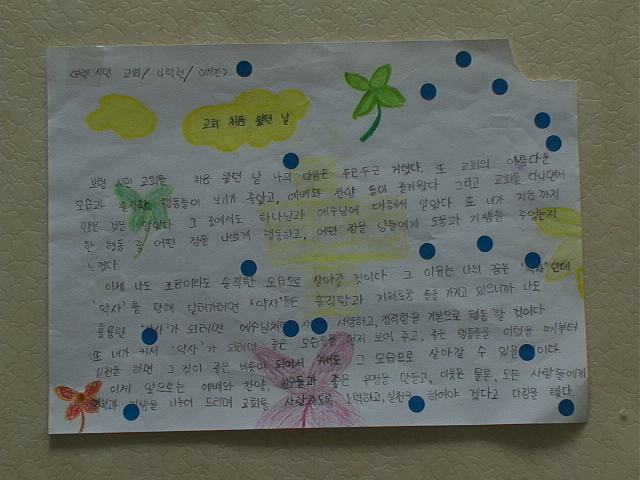 <보령 시민 교회/ 4학년/
교회 처음 왔던 날
보령 시민 교회를 처음 왔던 날 나의 마음은 두근두근 거렸다. 또 교회의 아름다운
모습과 솔직한 행동들이 보기가 좋았고, 예배와 찬양 등이 즐거웠다. 그리고 교회를 다니면서
많은 것은 알았다. 그 중에서도 하나님과 예수님에 대해서 알았다. 또 내가 지금까지
한 행동 중 어떤 점을 나쁘게 행동하고, 어떤 점을 남들에게 도움과 기쁨을 주었는지
느꼈다.
이제 나도 조금이라도 솔직한 모습으로 살아갈 것이다. 그 이유는 나의 꿈은 '약사'인데
'약사'를 향해 달려가려면 '약사'들은 솔직함과 지혜로움 등을 가지고 있으니까 나도
훌륭한 '약사'가 되려면 예수님처럼 사랑하고, 정직함을 기본으로 행동 할 것이다.
또 내가 커서 '약사'가 되려면 좋은 모습들을 먼저 보여 주고, 좋은 행동들을 어렸을 때부터
실천을 하면 그 것이 좋은 버릇이 되어서 커서도 그 모습으로 살아갈 수 있을 이다.
이제 앞으로는 예배와 찬양, 친구들과 좋은 우정을 만들고, 이웃은 물론, 모든 사람들에게
행복과 기쁨을 나누어 드리며 교회를 노력하고, 실천을 하여야 겠다고 다짐을 했다.